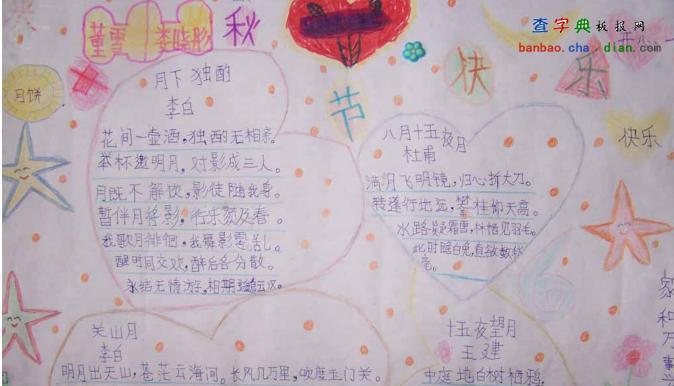 查字典板报网
banbao.cha.dian.com
秋
节
快
乐
月饼
快乐
月下独酌
李白
花间一壶酒，独酌无相亲。
举杯邀明月，对影成三人。
月既不解饮，影徒随我身。
暂伴月将影，行乐须及春。
我歌月徘徊，我舞影零乱。
醒时同交欢，醉后各分散。
永结无情游，相期邈云汉。
八月十五夜月
杜甫
满月飞明镜，归心折大刀。
转蓬行地远，攀桂仰天高。
水路疑霜雪，林栖见羽毛。
此时瞻白兔，直欲数秋
毫。
关山月
李白
明月出天山，苍茫云海间。长风几万里，吹度玉门关。
十五夜望月
王建
中庭地白树栖鸦
家
和
万
事